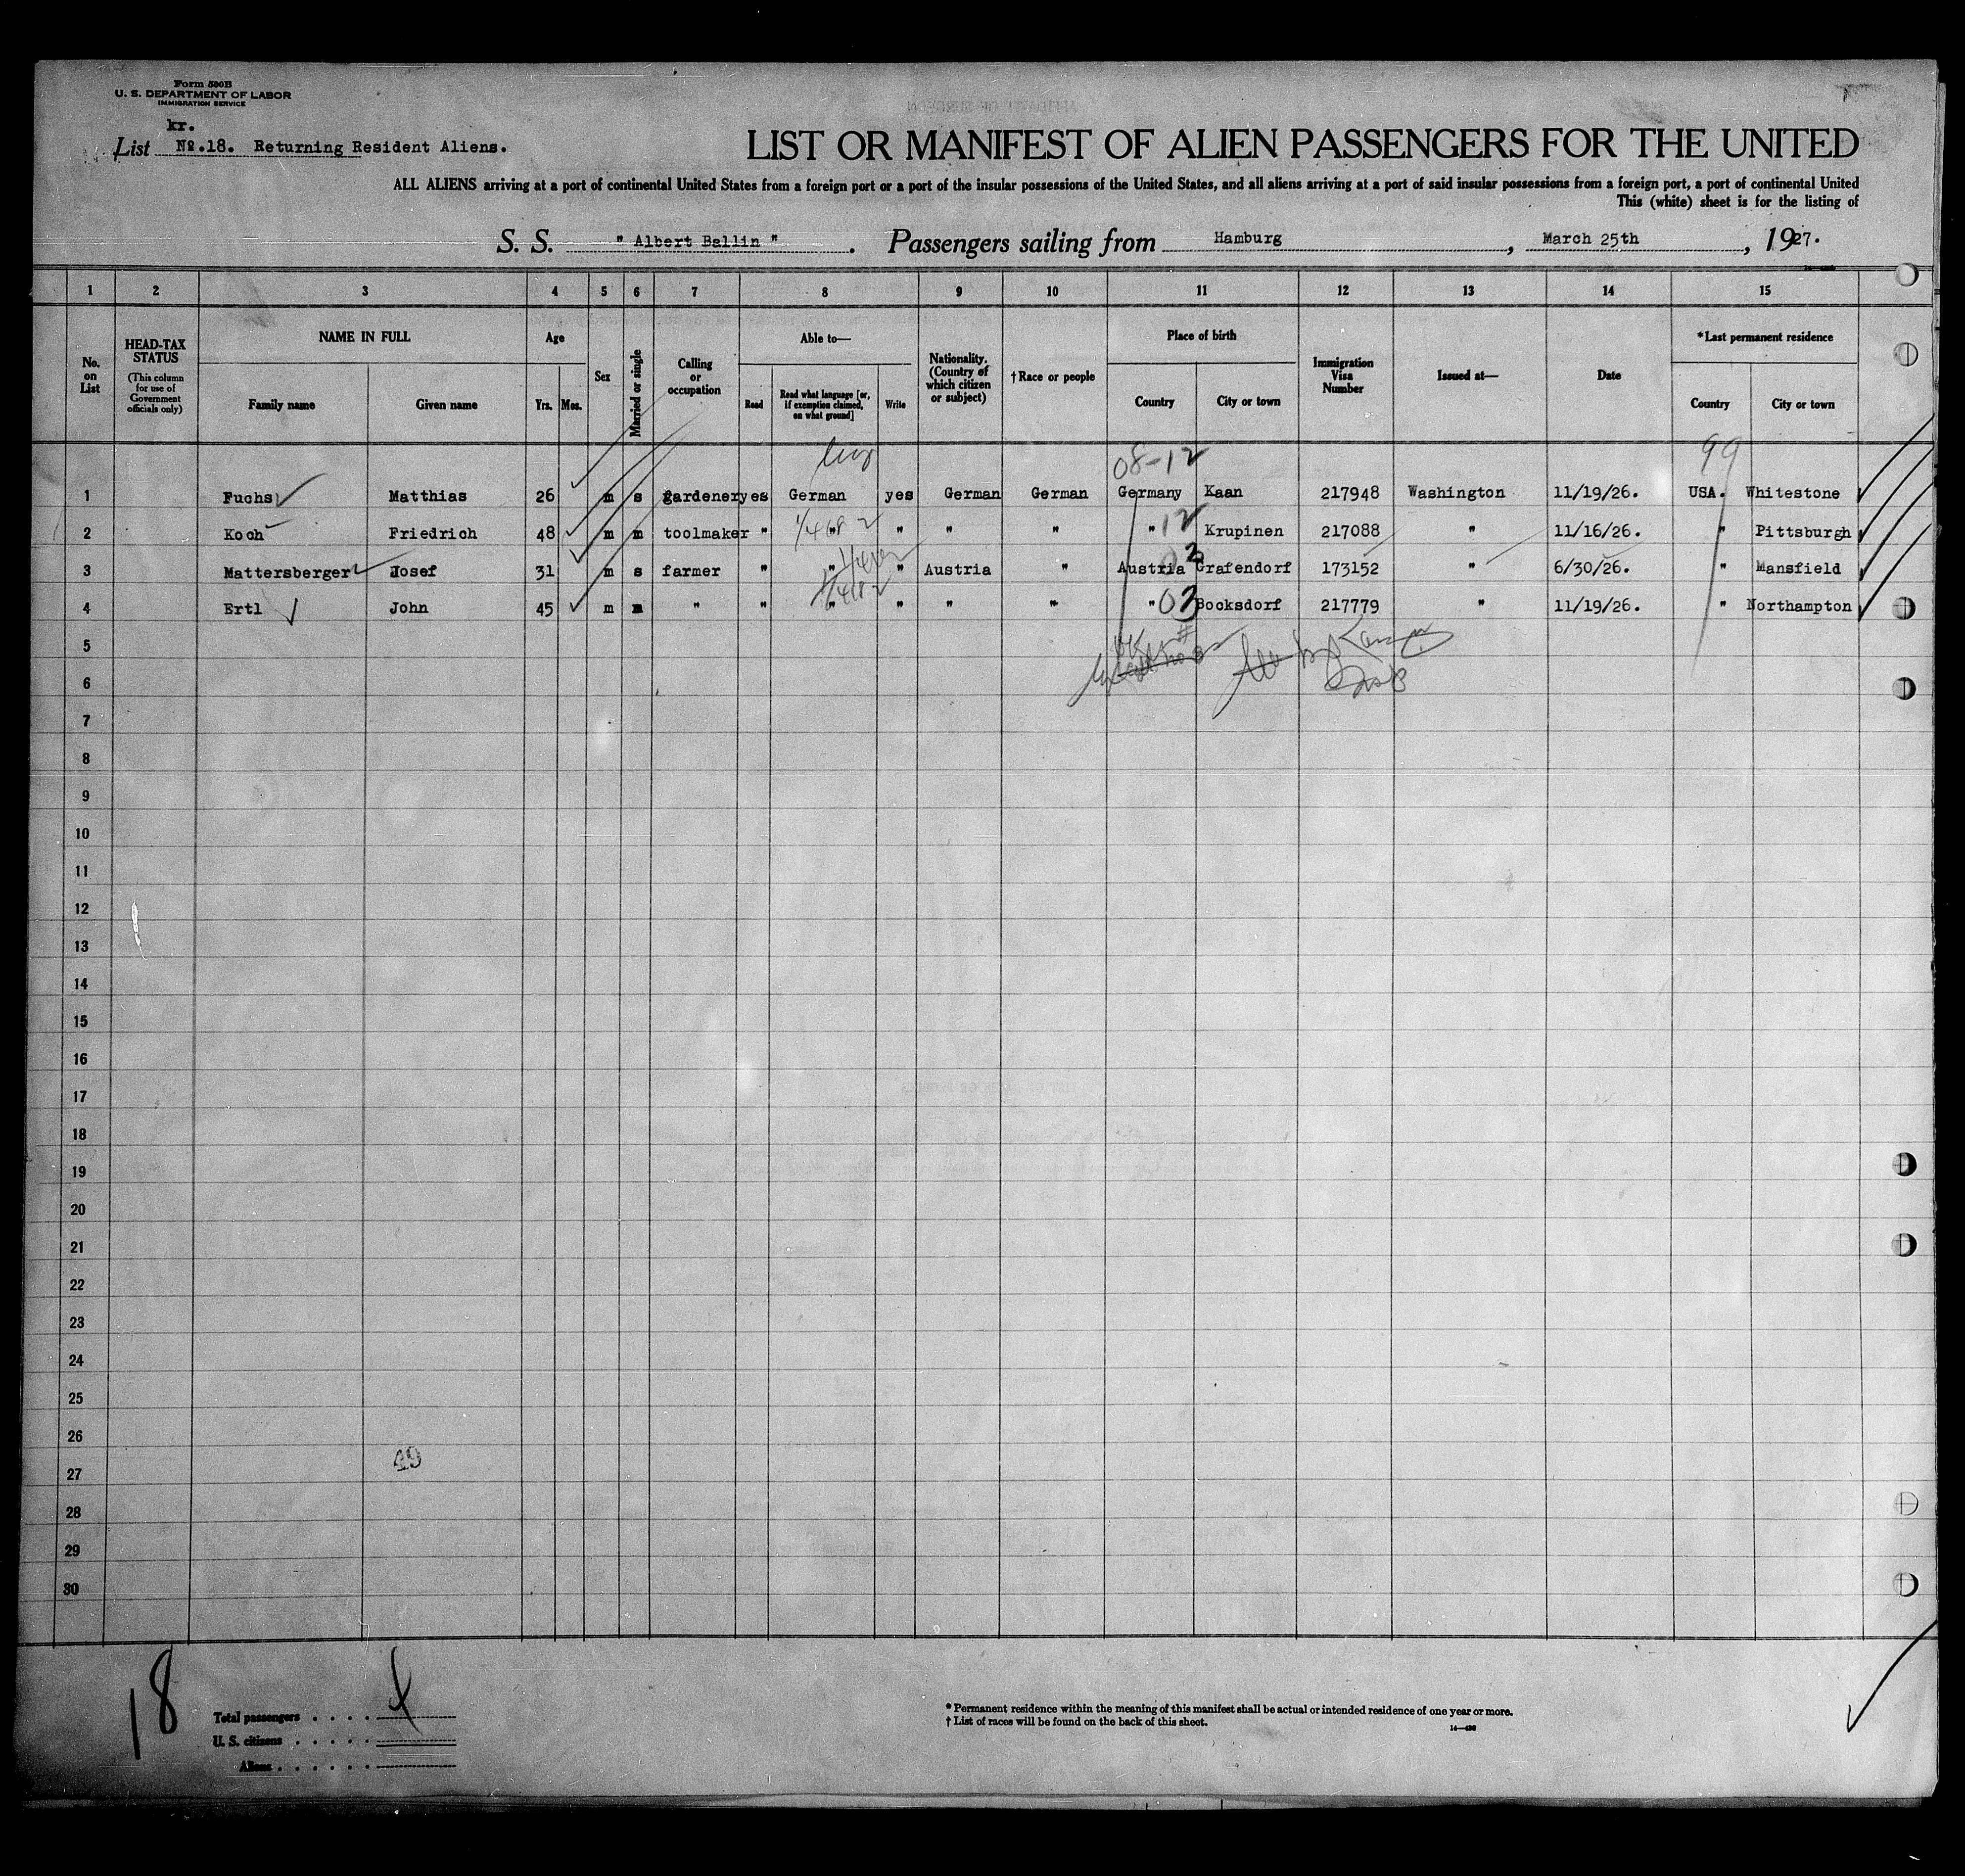 Form 500B
U. S. DEPARTMENT OF LABOR
IMMIGRATION SERVICE
kr.
List No.18. Returning Resident Aliens.
LIST OR MANIFEST OF ALIEN PASSENGERS FOR THE UNITED
ALL ALIENS arriving at a port of continental United States from a foreign port or a port of the insular possessions of the United States, and all aliens arriving at a port of said insular possessions from a foreign port, a port of continental United
This (white) sheet is for the listing of
S. S. " Albert Ballin ". Passengers sailing from Hamburg, March 25th, 1927.
1 2 3 4 5 6 7 8 9 10 11 12 13 14 15
No. on List
HEAD-TAX STATUS
(This column for use of Government officials only)
NAME IN FULL
Family name Given name
Age
Yrs. Mos.
Sex
Married or single
Calling or occupation
Able to—
Read
Read what language [or, if exemption claimed, on what ground]
Write
Nationality. (Country of which citizen or subject)
† Race or people
Place of birth
Country City or town
Immigration Visa Number
Issued at—
Date
*Last permanent residence
Country City or town
08-12 99
1 Fuchs Matthias 26 m s gardener yes German yes German German Germany Kaan 217948 Washington 11/19/26. USA. Whitestone
2 Koch Friedrich 48 m m toolmaker " " " " " " 12 Krupinen 217088 " 11/16/26. " Pittsburgh
3 Mattersberger Josef 31 m s farmer " " " Austria " Austria Grafendorf 173152 " 6/30/26. " Mansfield
4 Ertl John 45 m m " " " " " " " 03 Bocksdorf 217779 " 11/19/26. " Northampton
5
6
7
8
9
10
11
12
13
14
15
16
17
18
19
20
21
22
23
24
25
26
49
27
28
29
30
18
Total passengers . . . . 4
U. S. citizens . . . . .
Aliens . . . . . .
* Permanent residence within the meaning of this manifest shall be actual or intended residence of one year or more.
† List of races will be found on the back of this sheet.